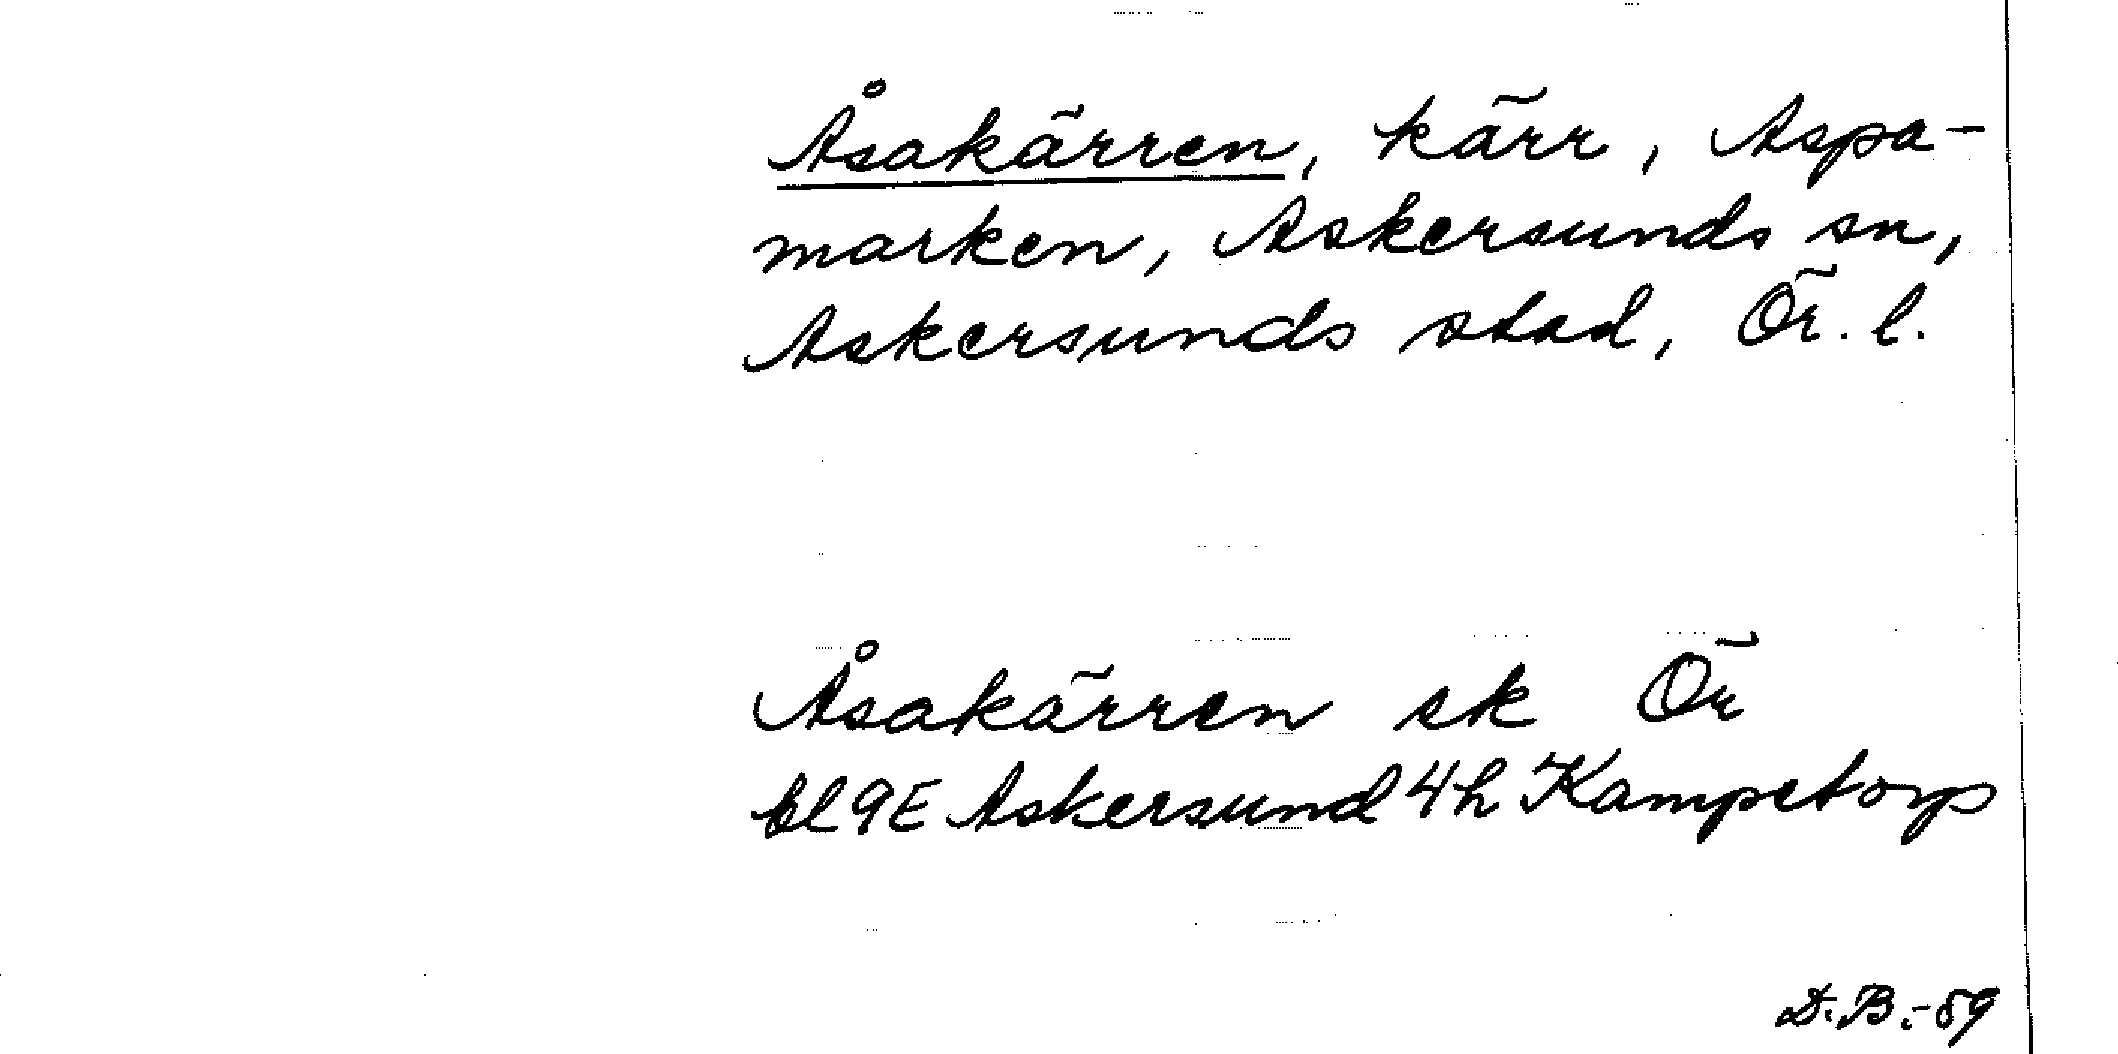 Åsakärren, kärr, Aspa-
marken, Askersunds sn,
Askersunds stad, Ör. l.
Åsakärren ek Ör
bl 9E Askersund 4h Kampetorp
D.B.-59